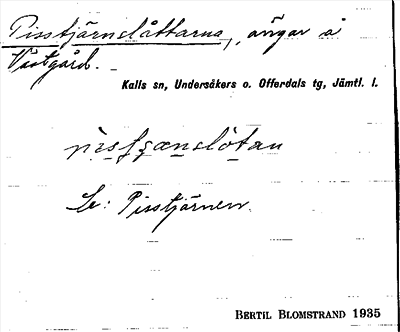 Pisstjärnslåttarna, ängar å
Västgård.
Kalls sn, Undersåkers o. Offerdals tg, Jämtl. l.
Se: Pisstjärnen.
BERTIL BLOMSTRAND 1935